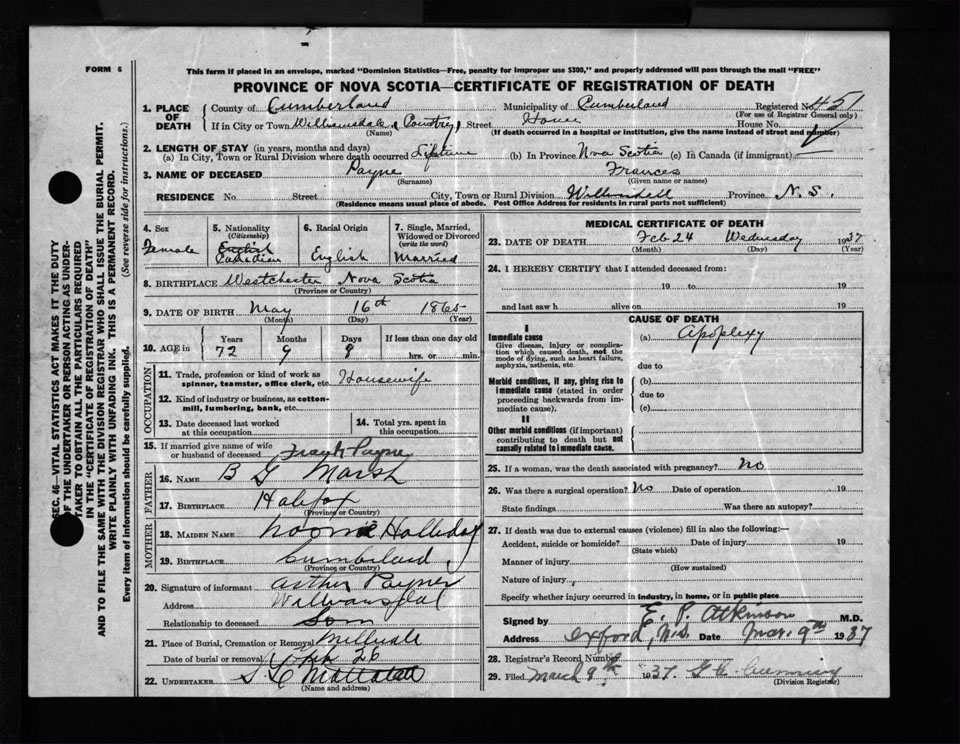 FORM 6
This form if placed in an envelope, marked "Dominion Statistics—Free, penalty for improper use $300," and properly addressed will pass through the mail "FREE"
PROVINCE OF NOVA SCOTIA—CERTIFICATE OF REGISTRATION OF DEATH
SEC. 46—VITAL STATISTICS ACT MAKES IT THE DUTY
OF THE UNDERTAKER OR PERSON ACTING AS UNDER-
TAKER TO OBTAIN ALL THE PARTICULARS REQUIRED
IN THE "CERTIFICATE OF REGISTRATION OF DEATH"
AND TO FILE THE SAME WITH THE DIVISION REGISTRAR WHO SHALL ISSUE THE BURIAL PERMIT.
WRITE PLAINLY WITH UNFADING INK. THIS IS A PERMANENT RECORD.
Every item of information should be carefully supplied. (See reverse side for instructions.)
1. PLACE OF DEATH County of Cumberland Municipality of Cumberland Registered No. 451
(For use of Registrar General only)
If in City or Town Williamsdale (Country) Street Home House No.
(Name) (If death occurred in a hospital or institution, give the name instead of street and number)
2. LENGTH OF STAY (in years, months and days)
(a) In City, Town or Rural Division where death occurred Lifetime (b) In Province Nova Scotia (c) In Canada (if immigrant)
3. NAME OF DECEASED Payne Frances
(Surname) (Given name or names)
RESIDENCE No. Street City, Town or Rural Division Province N. S.
(Residence means usual place of abode. Post Office Address for residents in rural parts not sufficient)
4. Sex Female
5. Nationality (Citizenship) English Canadian
6. Racial Origin English
7. Single, Married, Widowed or Divorced (write the word) Married
8. BIRTHPLACE Westchester Nova Scotia
(Province or Country)
9. DATE OF BIRTH May 16th 1865
(Month) (Day) (Year)
10. AGE in Years 72 Months 9 Days 8 If less than one day old hrs. or min.
OCCUPATION
11. Trade, profession or kind of work as spinner, teamster, office clerk, etc. Housewife
12. Kind of industry or business, as cotton-mill, lumbering, bank, etc.
13. Date deceased last worked at this occupation
14. Total yrs. spent in this occupation
15. If married give name of wife or husband of deceased Frank Payne
FATHER
16. NAME B G Marsh
17. BIRTHPLACE Halifax
(Province or Country)
MOTHER
18. MAIDEN NAME Halliday
19. BIRTHPLACE Cumberland
(Province or Country)
20. Signature of informant Arthur Payne
Address
Relationship to deceased son
21. Place of Burial, Cremation or Removal Millvale
Date of burial or removal Feb 26
22. UNDERTAKER
(Name and address)
MEDICAL CERTIFICATE OF DEATH
23. DATE OF DEATH Feb 24 Wednesday 1937
(Month) (Day) (Year)
24. I HEREBY CERTIFY that I attended deceased from:
19 to 19
and last saw h alive on 19
CAUSE OF DEATH
I
Immediate cause
Give disease, injury or complication which caused death, not the mode of dying, such as heart failure, asphyxia, asthenia, etc.
(a) Apoplexy
due to
Morbid conditions, if any, giving rise to immediate cause (stated in order proceeding backwards from immediate cause).
(b)
due to
(c)
II
Other morbid conditions (if important) contributing to death but not causally related to immediate cause.
25. If a woman, was the death associated with pregnancy? No
26. Was there a surgical operation? No Date of operation 19
State findings Was there an autopsy?
27. If death was due to external causes (violence) fill in also the following:—
Accident, suicide or homicide? Date of injury 19
(State which)
Manner of injury
(How sustained)
Nature of injury
Specify whether injury occurred in industry, in home, or in public place
Signed by E. P. Atkinson M.D.
Address Oxford, N.S. Date Mar. 9th 1937
28. Registrar's Record Number
29. Filed March 9th 1937
(Division Registrar)